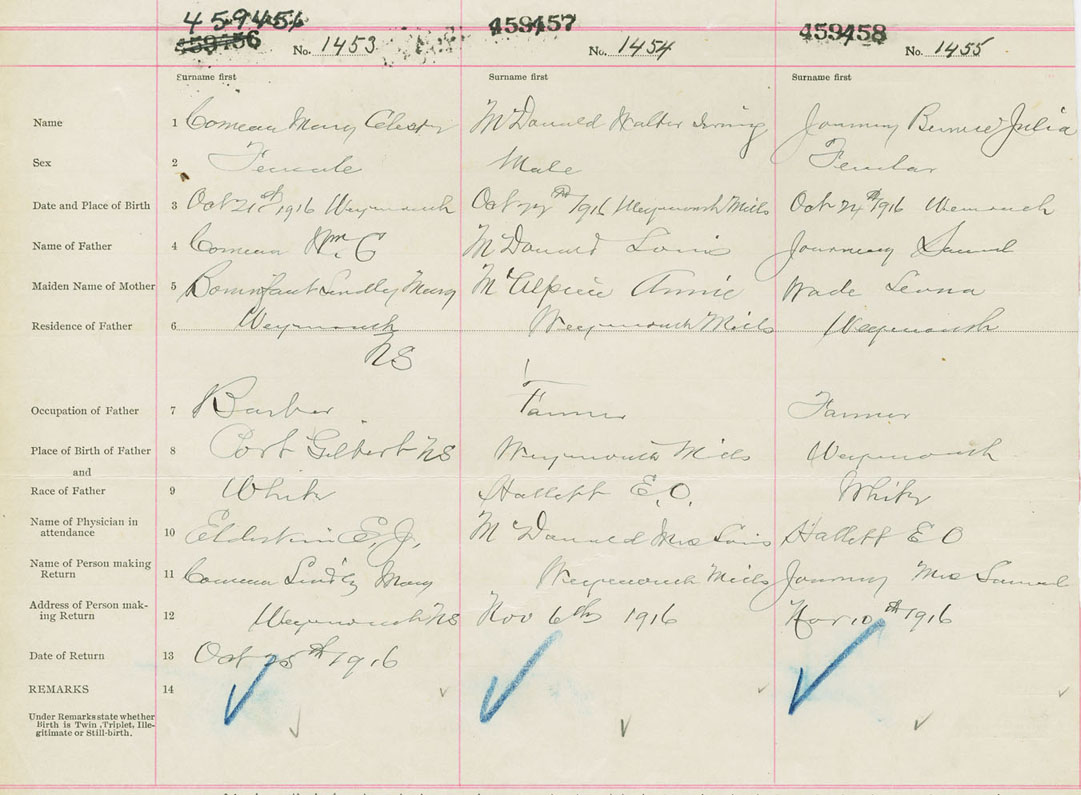 459456
459456 No. 1453 459457 No. 1454 459458 No. 1455
Surname first Surname first Surname first
Name 1 Comeau Mary McDonald Walter Irving Journey Julia
Sex 2 Female Male Female
Date and Place of Birth 3 Oct 21st 1916 Weymouth Oct 1916 Weymouth Mills Oct 24th 1916 Weymouth
Name of Father 4 Comeau Wm. C McDonald Louis Journeay Samuel
Maiden Name of Mother 5 Mary McAlpine Annie Wade Leona
Residence of Father 6 Weymouth Weymouth Mills Weymouth
NS
Occupation of Father 7 Barber Farmer Farmer
Place of Birth of Father 8 Port Gilbert NS Weymouth Mills Weymouth
and
Race of Father 9 White Hallett E.O. White
Name of Physician in
attendance 10 Elderkin E.J. McDonald Mrs Louis Hallett E O
Name of Person making
Return 11 Comeau Mary Weymouth Mills Journey Mrs Samuel
Address of Person mak-
ing Return 12 Weymouth NS Nov 6th 1916 10th 1916
Date of Return 13 Oct 25th 1916
REMARKS 14
Under Remarks state whether
Birth is Twin, Triplet, Ille-
gitimate or Still-birth.